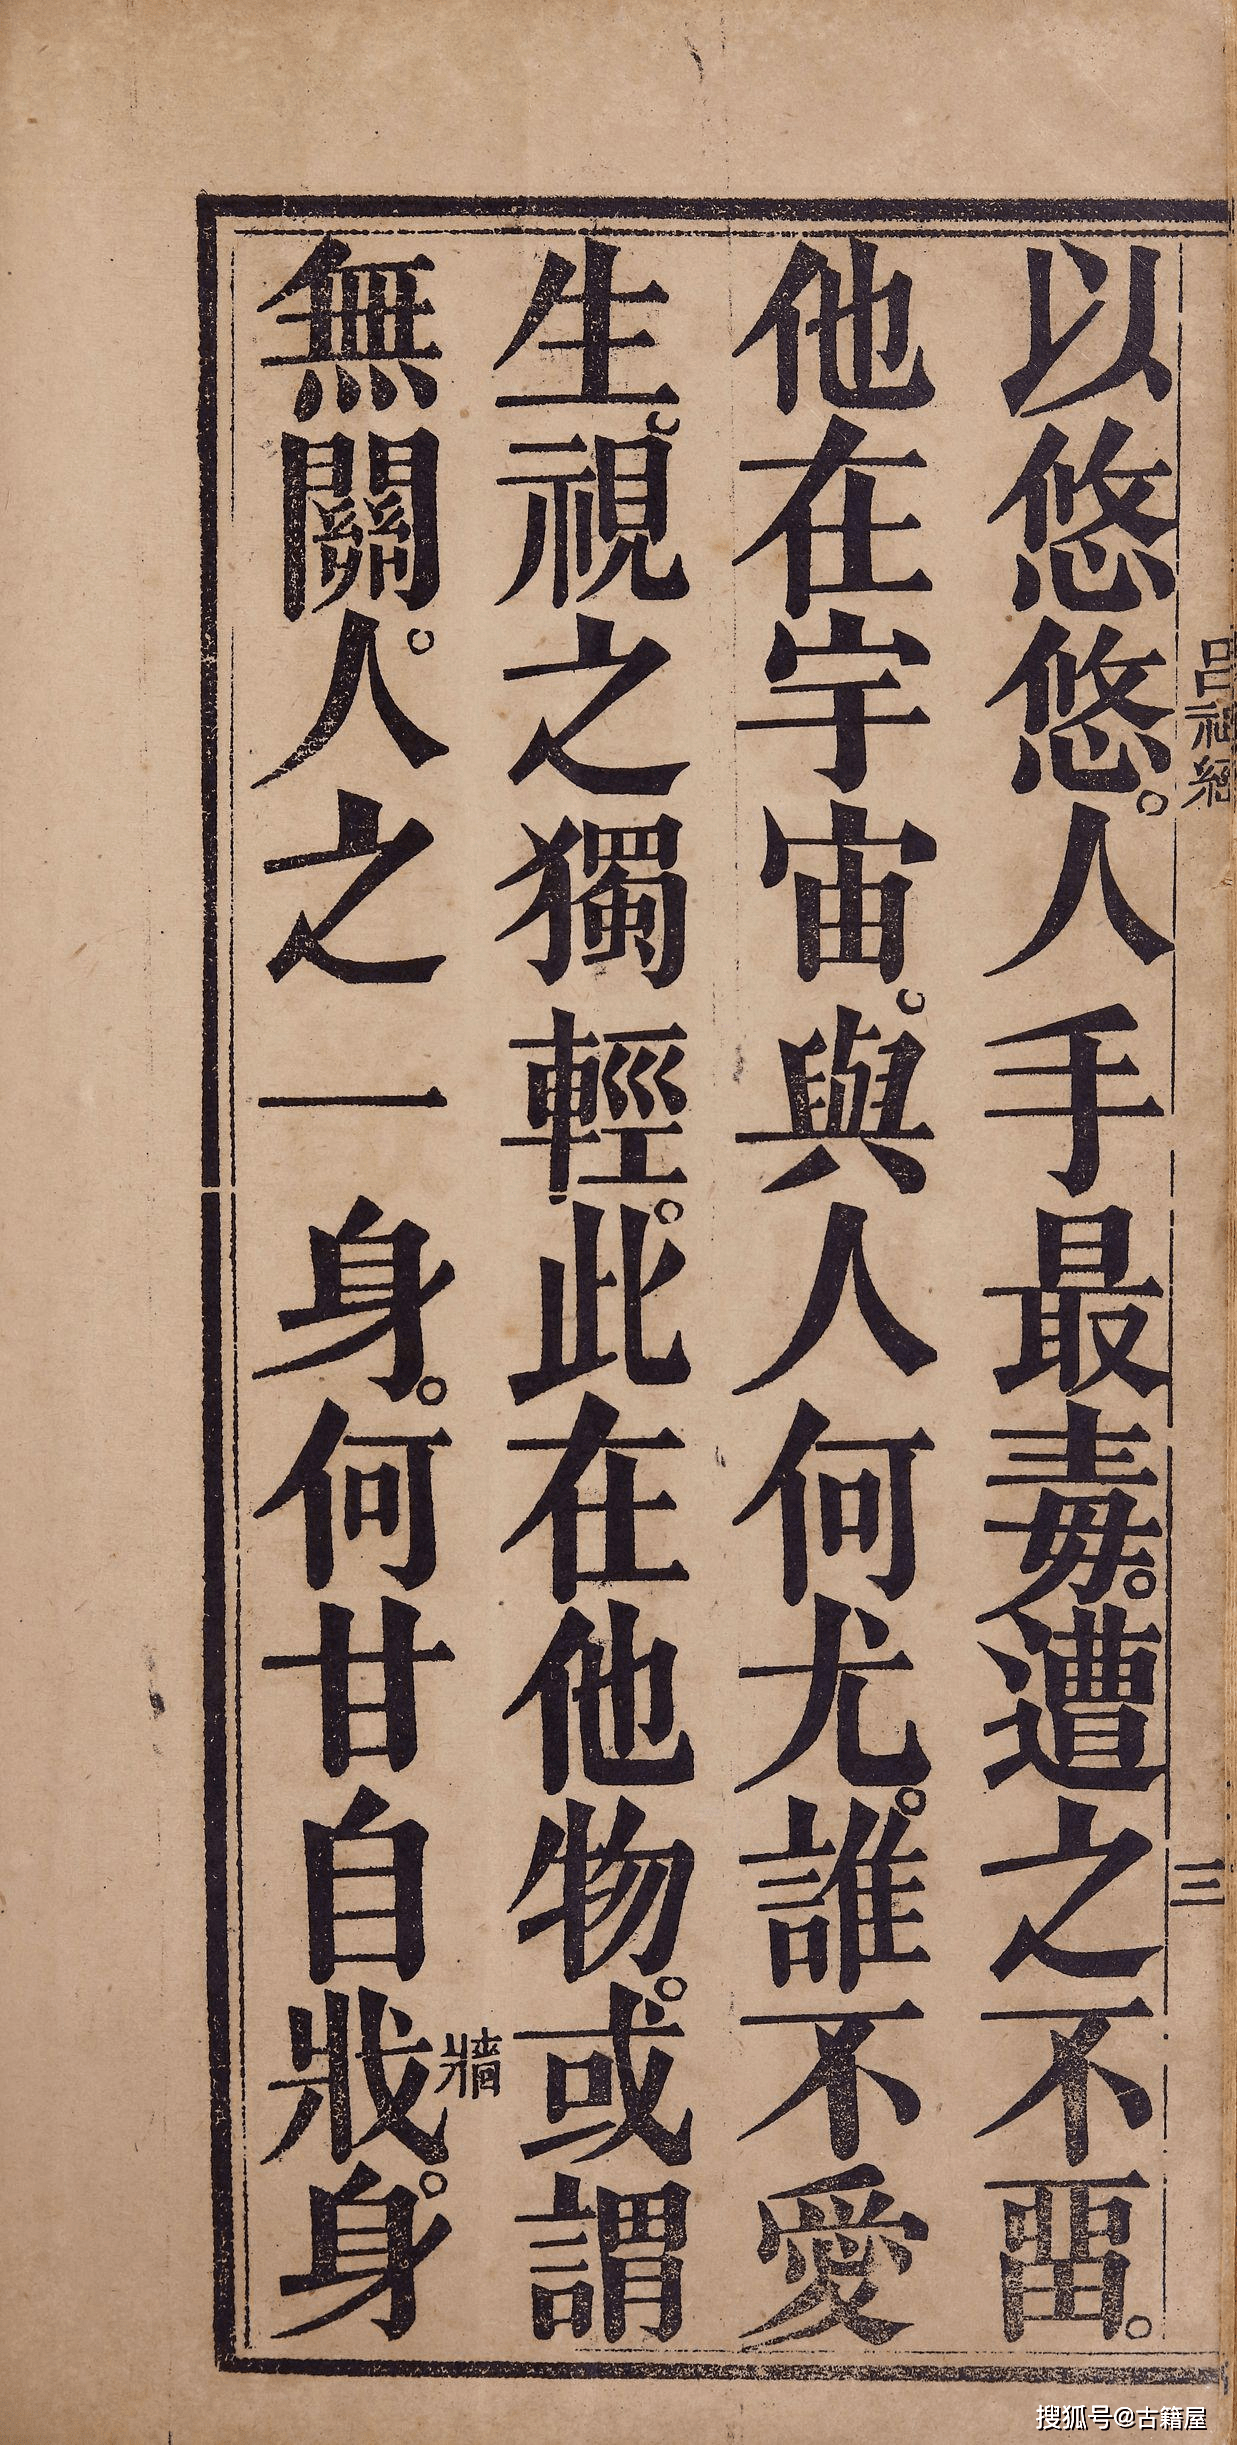 呂祖經
三
以悠悠。人手最毒。遭之不畱。
他在宇宙。與人何尤。誰不愛
生。視之獨輕。此在他物。或謂
無關。人之一身。何甘自戕。身
牆
搜狐号@古籍屋